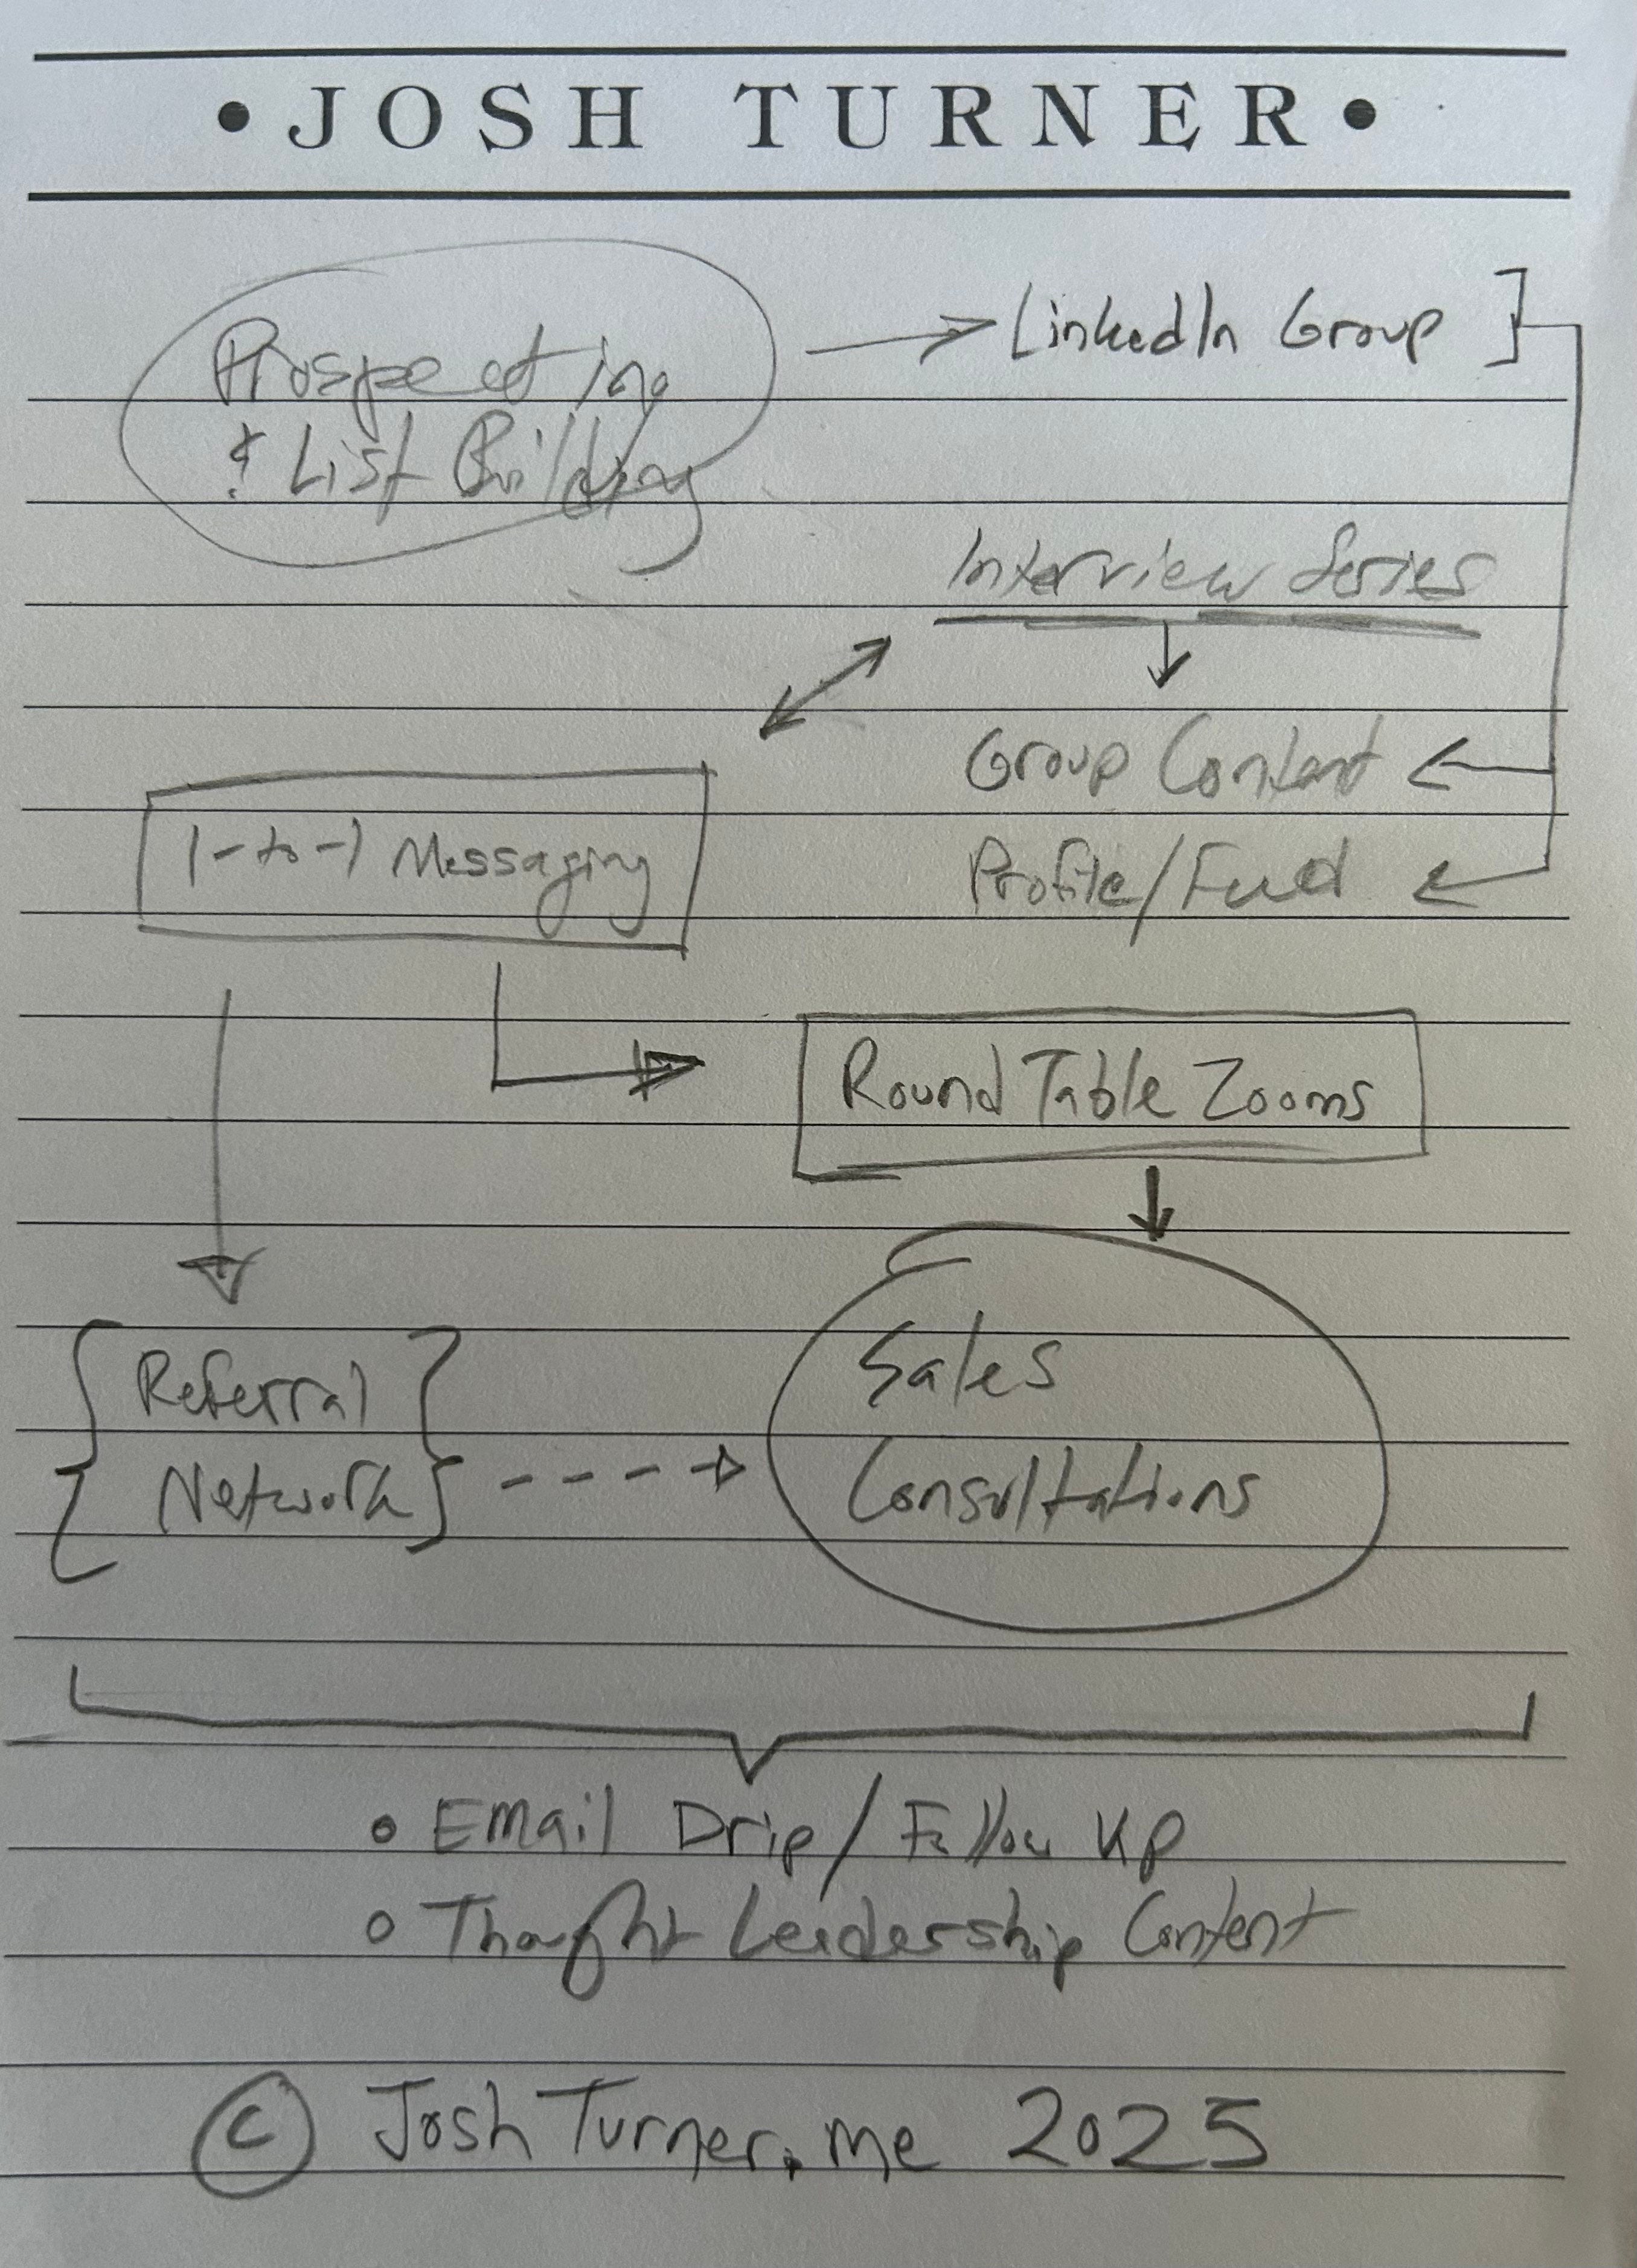 • JOSH TURNER •
Prospecting
& List Building
LinkedIn Group ]
Interview Series
Group Content
Profile/Feed
1-to-1 Messaging
Round Table Zooms
{ Referral }
{ Network }
Sales
Consultations
• Email Drip/Follow Up
○ Thought Leadership Content
© Josh Turner.me 2025